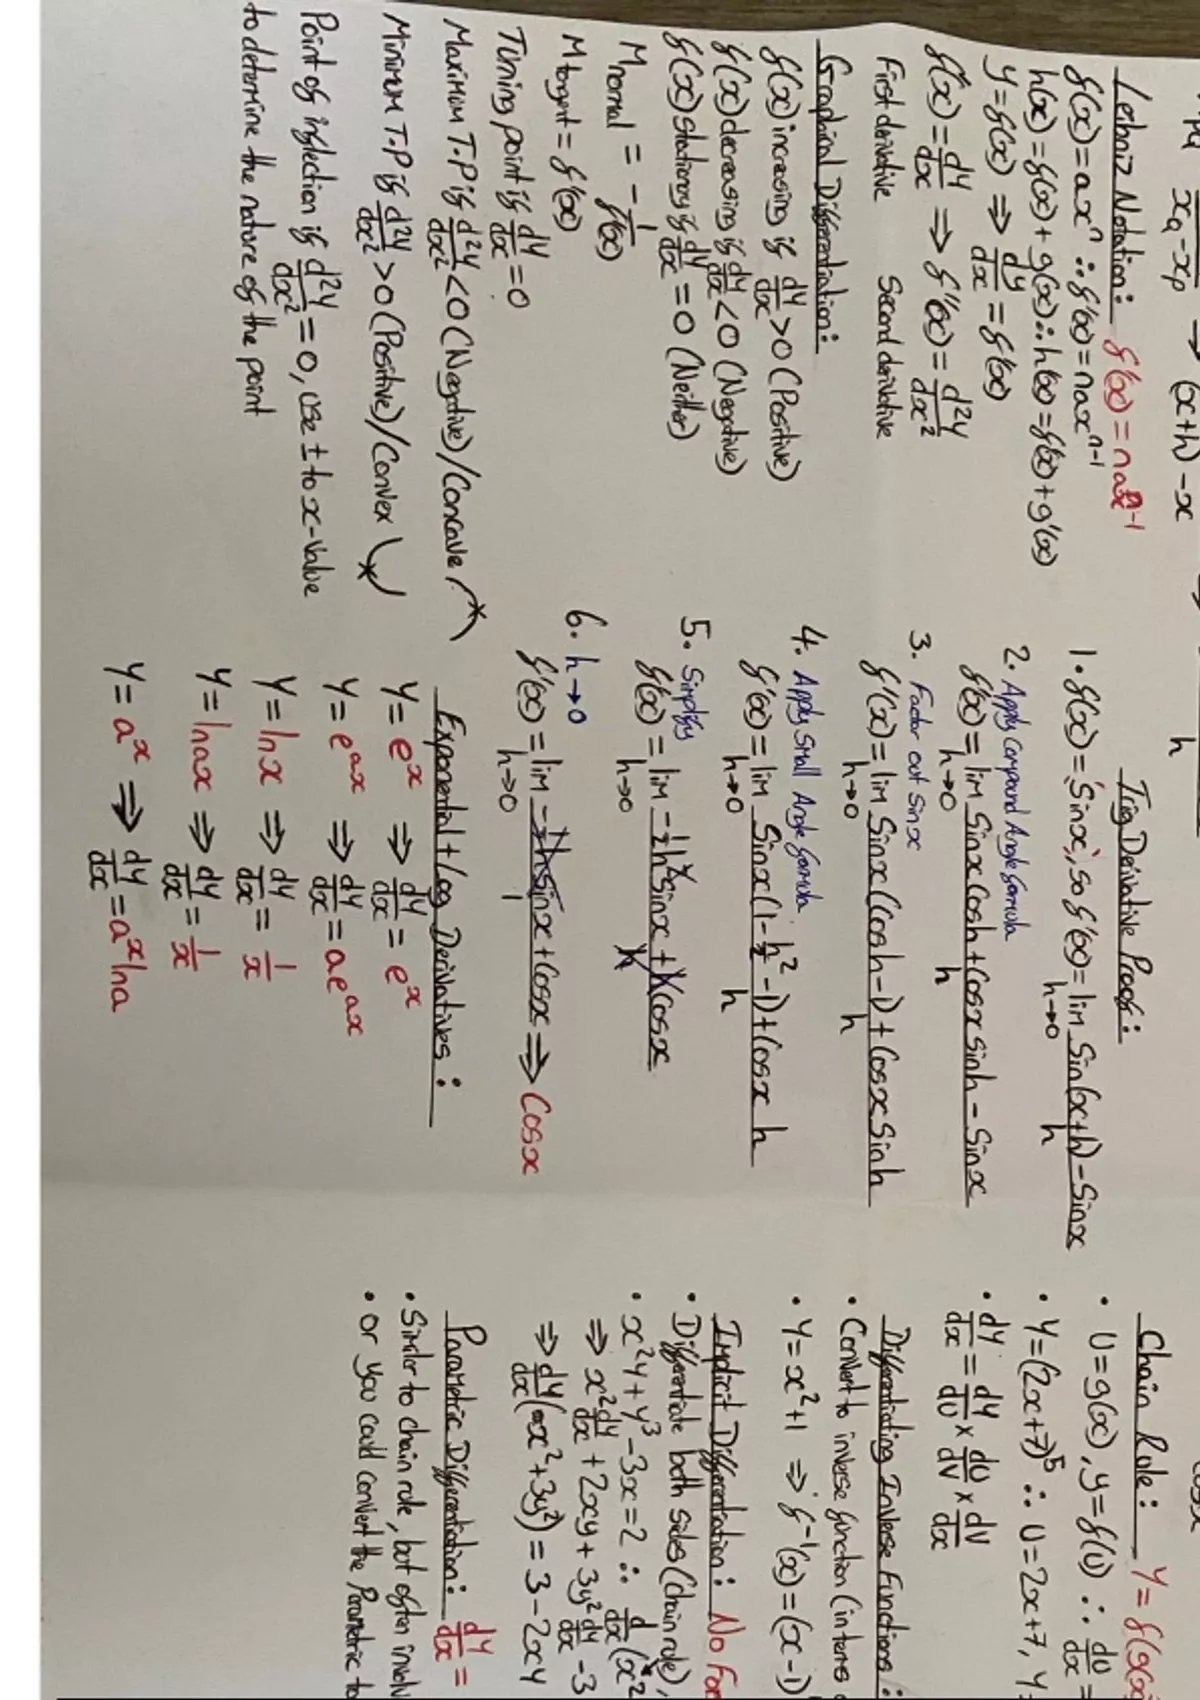 x_q - x_p → (x+h) - x
h
Leibniz Notation: f'(x) = nax^n-1
f(x) = ax^n ∴ f'(x) = nax^n-1
h(x) = f(x) + g(x) ∴ h'(x) = f'(x) + g'(x)
y = f(x) ⇒ dy/dx = f'(x)
f'(x) = dy/dx ⇒ f''(x) = d²y/dx²
First derivative Second derivative
Graphical Differentiation:
f(x) increasing if dy/dx > 0 (Positive)
f(x) decreasing if dy/dx < 0 (Negative)
f(x) stationary if dy/dx = 0 (Neither)
M normal = - 1/f'(x)
M tangent = f'(x)
Turning point if dy/dx = 0
Maximum T.P if d²y/dx² < 0 (Negative) / Concave
Minimum T.P if d²y/dx² > 0 (Positive) / Convex
Point of inflection if d²y/dx² = 0, use ± to x-value
to determine the nature of the point
Trig Derivative Proof:
1. f(x) = 'Sinx', so f'(x) = lim h→0 Sin(x+h) - Sinx / h
2. Apply Compound Angle formula
f'(x) = lim h→0 Sinx Cosh + Cosx sinh - Sinx / h
3. Factor out sinx
f'(x) = lim h→0 Sinx (Cosh - 1) + Cosx Sinh / h
4. Apply Small Angle formula
f'(x) = lim h→0 Sinx (1 - h²/2 - 1) + Cosx h / h
5. Simplify
f'(x) = lim h→0 -½h² sinx + h Cosx / h
6. h→0
f'(x) = lim h→0 -½h sinx + Cosx / 1 ⇒ Cosx
Exponential + Log Derivatives:
y = e^x ⇒ dy/dx = e^x
y = e^ax ⇒ dy/dx = ae^ax
y = ln x ⇒ dy/dx = 1/x
y = ln ax ⇒ dy/dx = 1/x
y = a^x ⇒ dy/dx = a^x ln a
Chain Rule: y = f(g(x)
• U = g(x), y = f(U) ∴ dU/dx =
• y = (2x+7)^5 ∴ U = 2x+7, y =
• dy/dx = dy/dU × dU/dV × dV/dx
Differentiating Inverse Functions:
• Convert to inverse function (in terms
• y = x² + 1 ⇒ f^-1(x) = (x - 1)
Implicit Differentiation: No For
• Differentiate both sides (chain rule),
• x²y + y³ - 3x = 2 ∴ d/dx (x²
⇒ x² dy/dx + 2xy + 3y² dy/dx - 3
⇒ dy/dx (x² + 3y²) = 3 - 2xy
Parametric Differentiation: dy/dx =
• Similar to chain rule, but often involv
• or you could convert the Parametric to